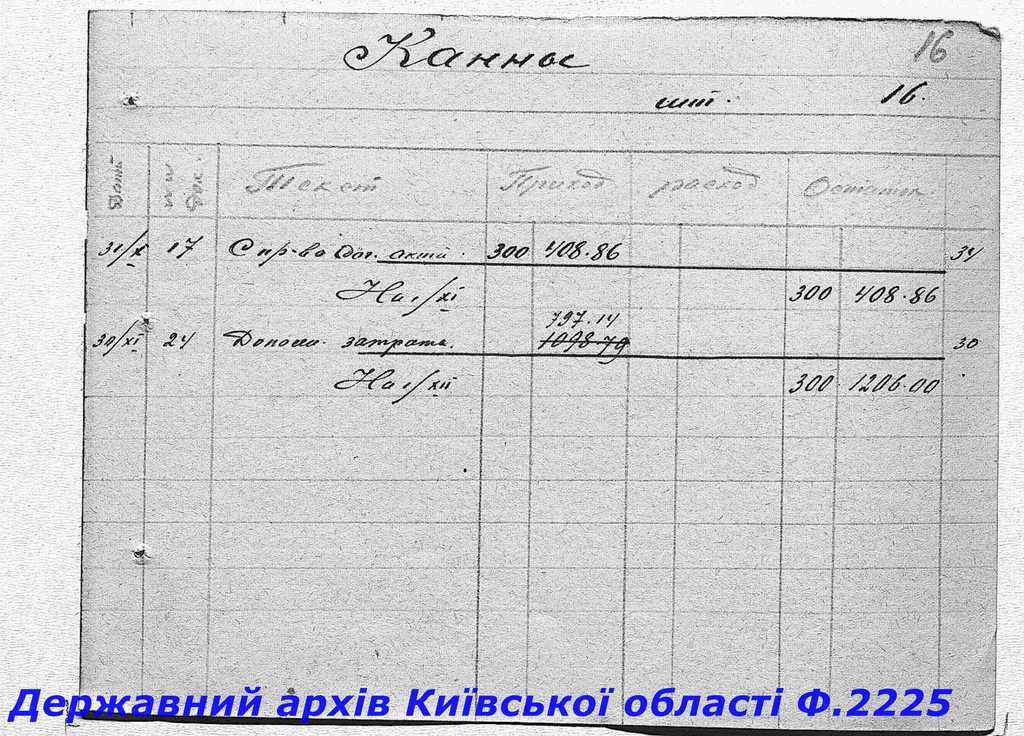 16
Канны
шт. 16.
Дата № док. Текст Приход расход Остаток
31/X 17 С пр-во 300 408.86 34
На 1/XI 300 408.86
797.14
30/XI 24 затрата. 1098-79 30
На 1/XII 300 1206.00
Державний архів Київської області Ф.2225